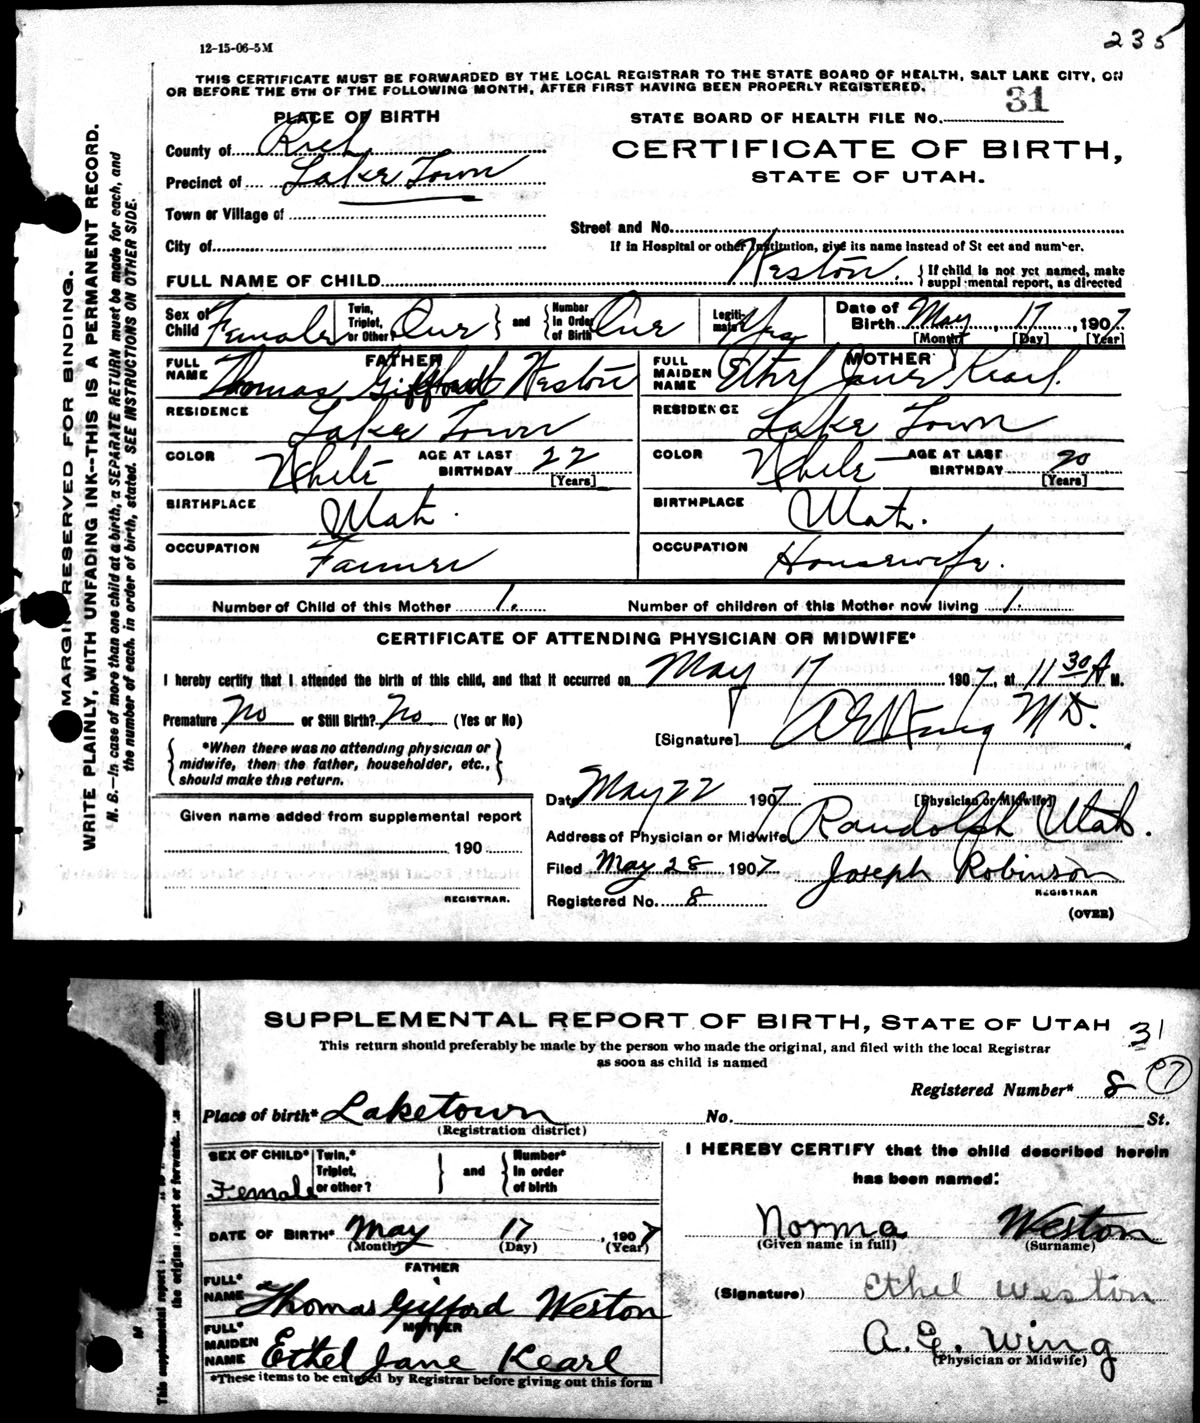 12-15-06-5M
235
THIS CERTIFICATE MUST BE FORWARDED BY THE LOCAL REGISTRAR TO THE STATE BOARD OF HEALTH, SALT LAKE CITY, ON
OR BEFORE THE 5TH OF THE FOLLOWING MONTH, AFTER FIRST HAVING BEEN PROPERLY REGISTERED.
31
PLACE OF BIRTH
STATE BOARD OF HEALTH FILE No.
County of Rich
CERTIFICATE OF BIRTH,
Precinct of Lake Town
STATE OF UTAH.
Town or Village of
Street and No.
City of
If in Hospital or other Institution, give its name instead of St eet and number.
FULL NAME OF CHILD Weston. } If child is not yet named, make
suppl mental report, as directed
Sex of Child Female Twin, Triplet, or Other? One } and { Number in Order of Birth One Legiti- mate? Yes Date of Birth May 17, 1907
[Month] [Day] [Year]
FATHER
FULL NAME Thomas Gifford Weston
MOTHER
FULL MAIDEN NAME Ethel Jane Kearl.
RESIDENCE Lake Town
RESIDENCE Lake Town
COLOR White AGE AT LAST BIRTHDAY 22 [Years]
COLOR White AGE AT LAST BIRTHDAY 20 [Years]
BIRTHPLACE Utah.
BIRTHPLACE Utah.
OCCUPATION Farmer
OCCUPATION Housewife.
Number of Child of this Mother 1. Number of children of this Mother now living 1.
CERTIFICATE OF ATTENDING PHYSICIAN OR MIDWIFE*
I hereby certify that I attended the birth of this child, and that it occurred on May 17 1907, at 11 30 A M.
Premature No or Still Birth? No (Yes or No)
[Signature] A E Wing M D.
*When there was no attending physician or
midwife, then the father, householder, etc.,
should make this return.
Date May 22 1907 [Physician or Midwife]
Given name added from supplemental report
Address of Physician or Midwife Randolph Utah.
190
Filed May 28 1907 Joseph Robinson
REGISTRAR
REGISTRAR.
Registered No. 8
(OVER)
MARGIN RESERVED FOR BINDING.
WRITE PLAINLY, WITH UNFADING INK--THIS IS A PERMANENT RECORD.
N. B.—In case of more than one child at a birth, a SEPARATE RETURN must be made for each, and
the number of each, in order of birth, stated. SEE INSTRUCTIONS ON OTHER SIDE.
SUPPLEMENTAL REPORT OF BIRTH, STATE OF UTAH 31
This return should preferably be made by the person who made the original, and filed with the local Registrar
as soon as child is named
Registered Number* 8 07
Place of birth* Laketown No. St.
(Registration district)
SEX OF CHILD* Female Twin,* Triplet, or other? } and { Number* in order of birth
I HEREBY CERTIFY that the child described herein
has been named:
DATE OF BIRTH* May 17, 1907
(Month) (Day) (Year)
Norma Weston
(Given name in full) (Surname)
FATHER
FULL* NAME Thomas Gifford Weston
(Signature) Ethel Weston
MOTHER
FULL* MAIDEN NAME Ethel Jane Kearl
A. E. Wing
(Physician or Midwife)
*These items to be entered by Registrar before giving out this form
This supplemental report
the original report or forwarde